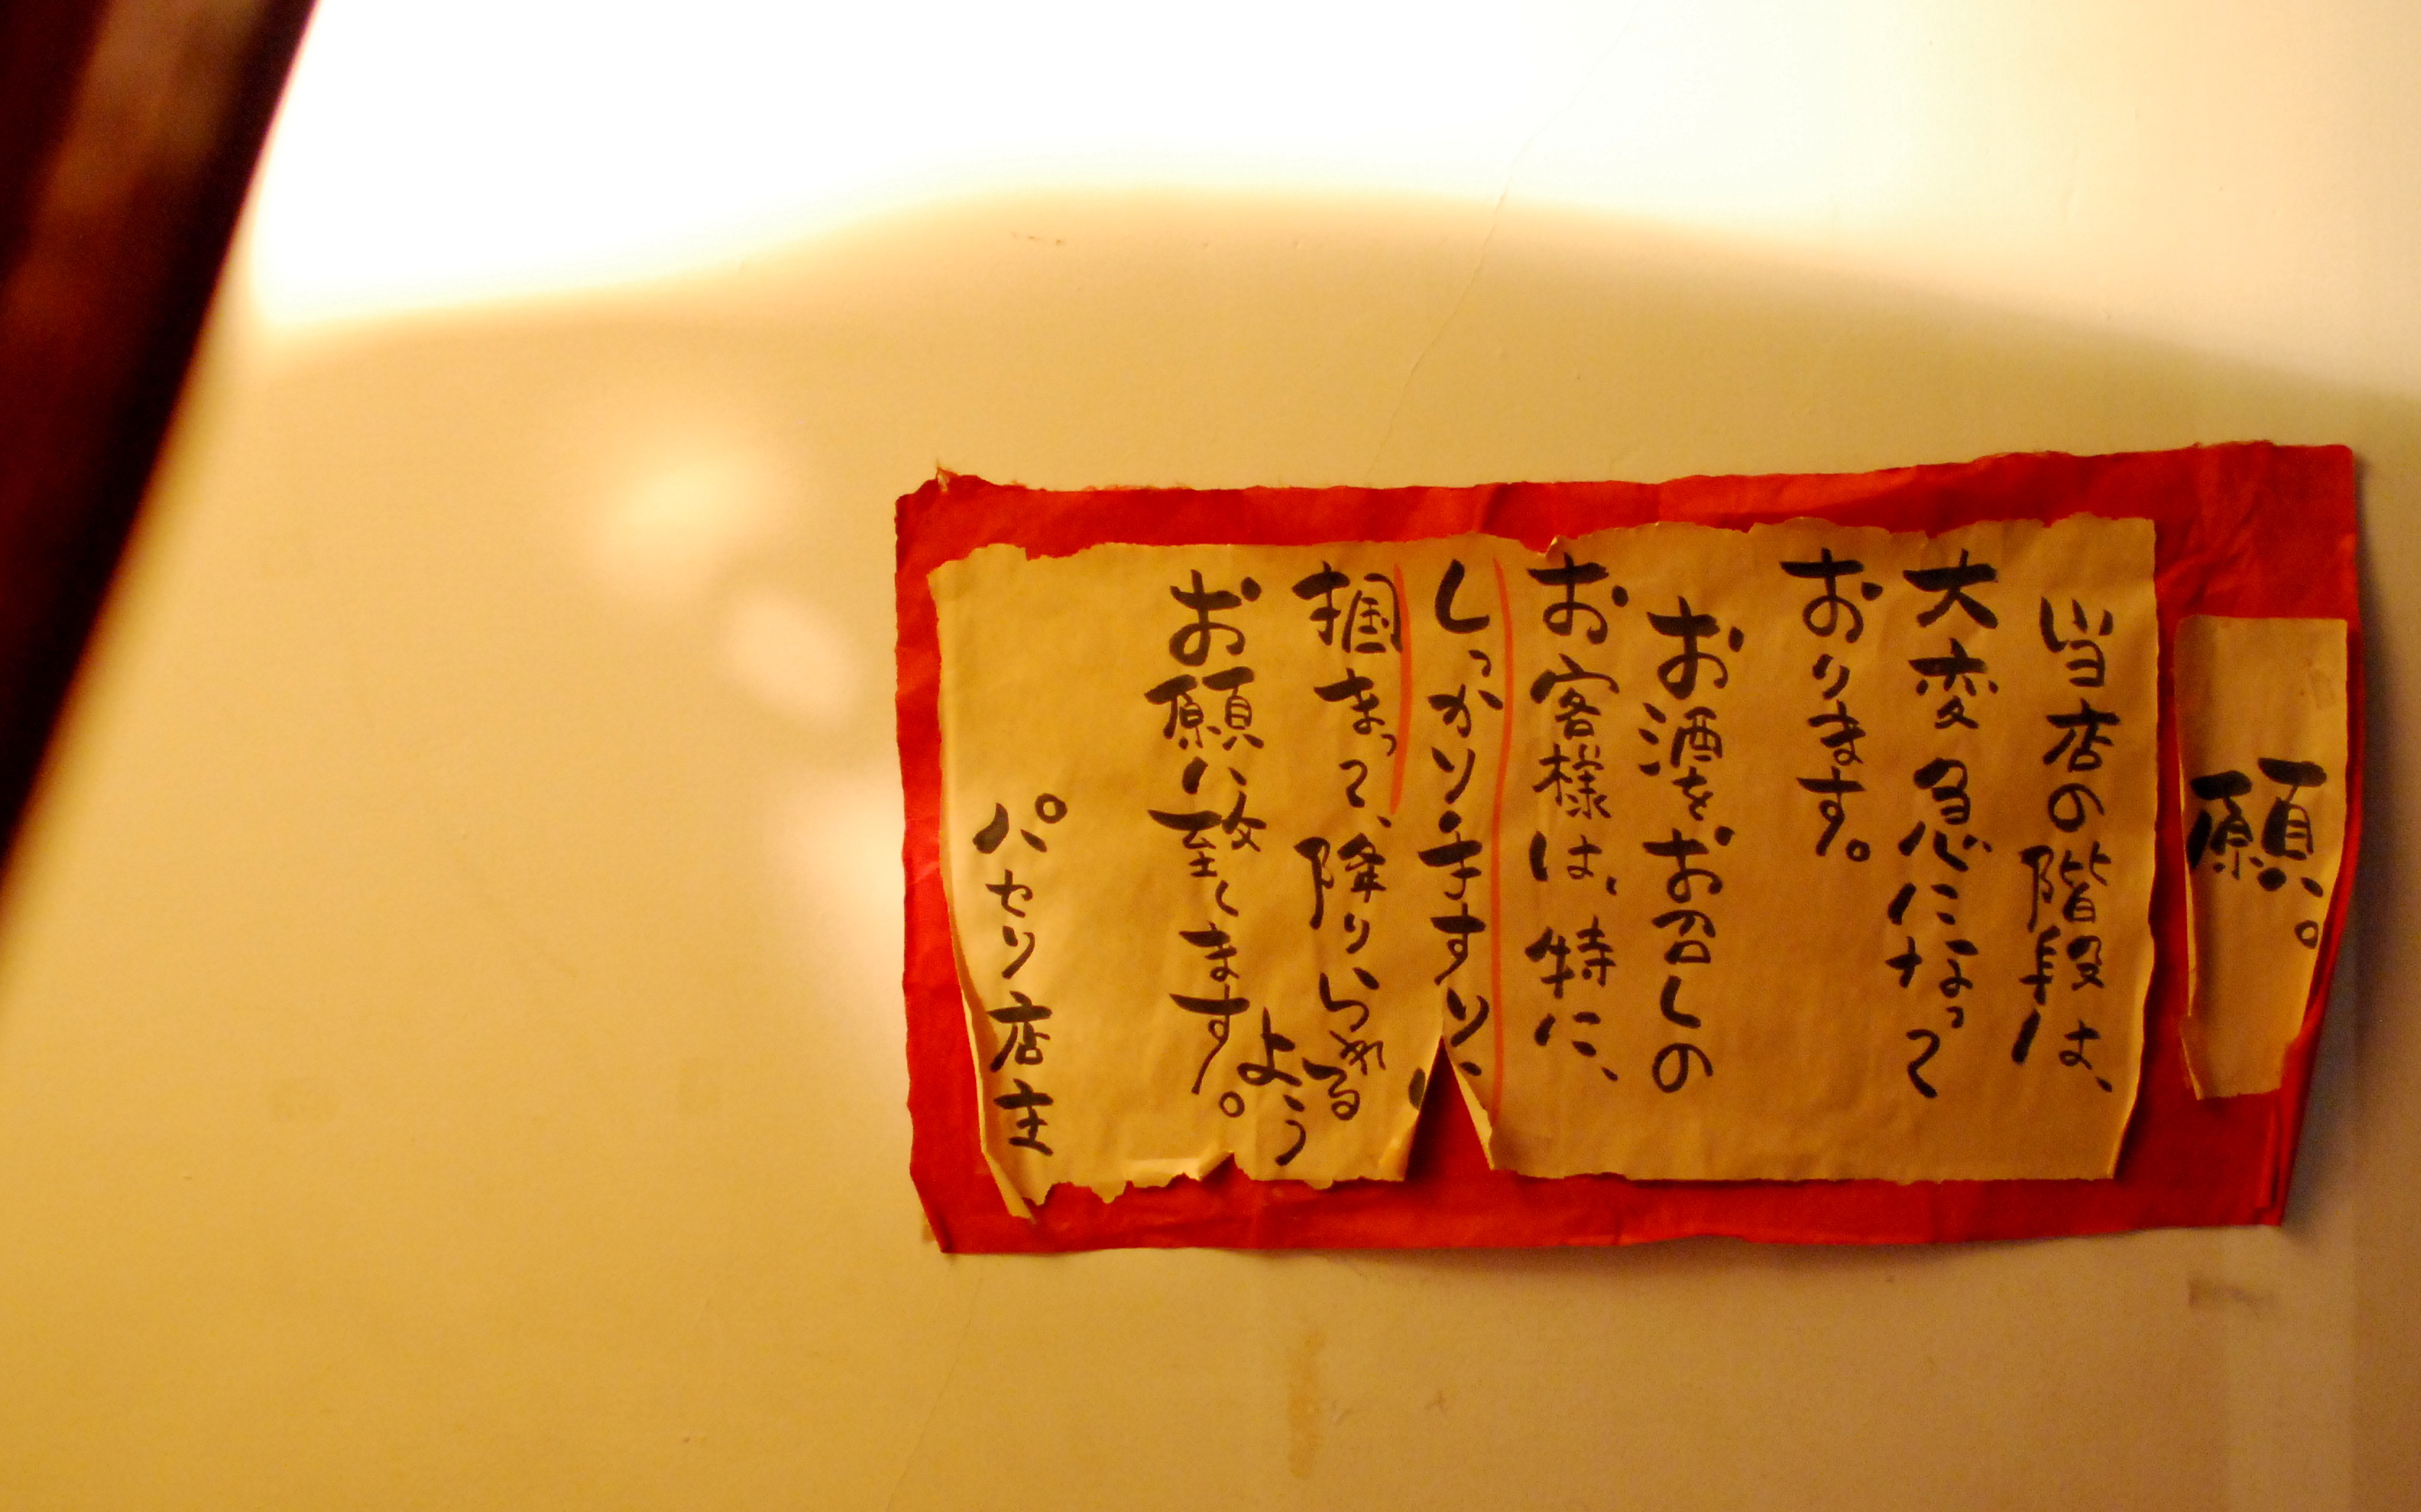 願。
当店の階段は、
大変急になって
おります。
お酒をお召しの
お客様は、特に、
しっかり手すりに
掴まって、降りられる
よう
お願い致します。
パセリ店主